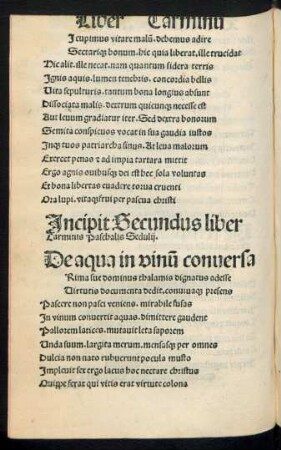 Liber Carminũ
Si cupimus vitare malũ: debemus adire
Sectariqʒ bonum. hic quia liberat, ille trucidat
Hic alit. ille necat. nam quantum sidera terris
Ignis aquis. lumen tenebris. concordia bellis
Vita sepulturis. tantum bona longius absunt
Dissociata malis. dextrum quicunqʒ necesse est
Aut leuum gradiatur iter. Sed dextra bonorum
Semita conspicuos vocat in sua gaudia iustos
Inqʒ tuos patriarcha sinus. At leua malorum
Exercet penas & ad impia tartara mittit
Ergo agnis ouibusqʒ dei est hec sola voluntas
Et bona libertas euadere torua cruenti
Ora lupi. vitaqʒ frui per pascua christi
Incipit Secundus liber
Carminis Paschalis Sedulij.
De aqua in vinũ conuersa
Rima sue dominus thalamis dignatus adesse
Virtutis documenta dedit. conuiuaqʒ presens
Pascere non pasci veniens. mirabile fusas
In vinum conuertit aquas. dimittere gaudent
Pallorem latices. mutauit leta saporem
Unda suum. largita merum. mensasqʒ per omnes
Dulcia non nato rubuerunt pocula musto
Impleuit sex ergo lacus hoc nectare christus
Quippe ferax qui vitis erat virtute colona